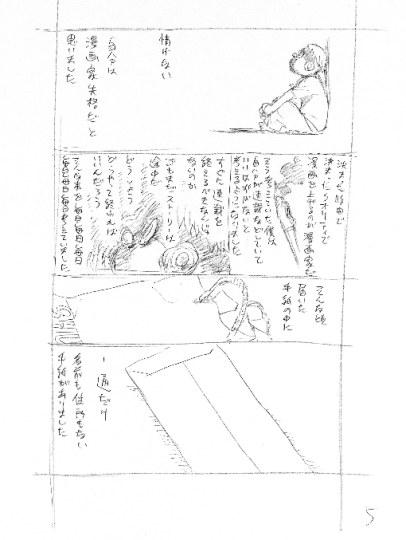 情けない
自分は
漫画家失格だと
思いました
決まった締切で
決まったクオリティで
漫画を上げるのが漫画家だ
そう考えていた僕は
あんが連載などしていて
いいはずがないと
考えるようになりました
すぐに連載を
終えるべきなんじゃ
ないのか
でもまだストーリーは
途中だ
どうしよう
どうやって終われば
いいんだろう
そんな事を毎日毎日
毎日毎日考えていました
そんな頃
届いた
手紙の中に
一通だけ
名前も住所もない
手紙がありました
5